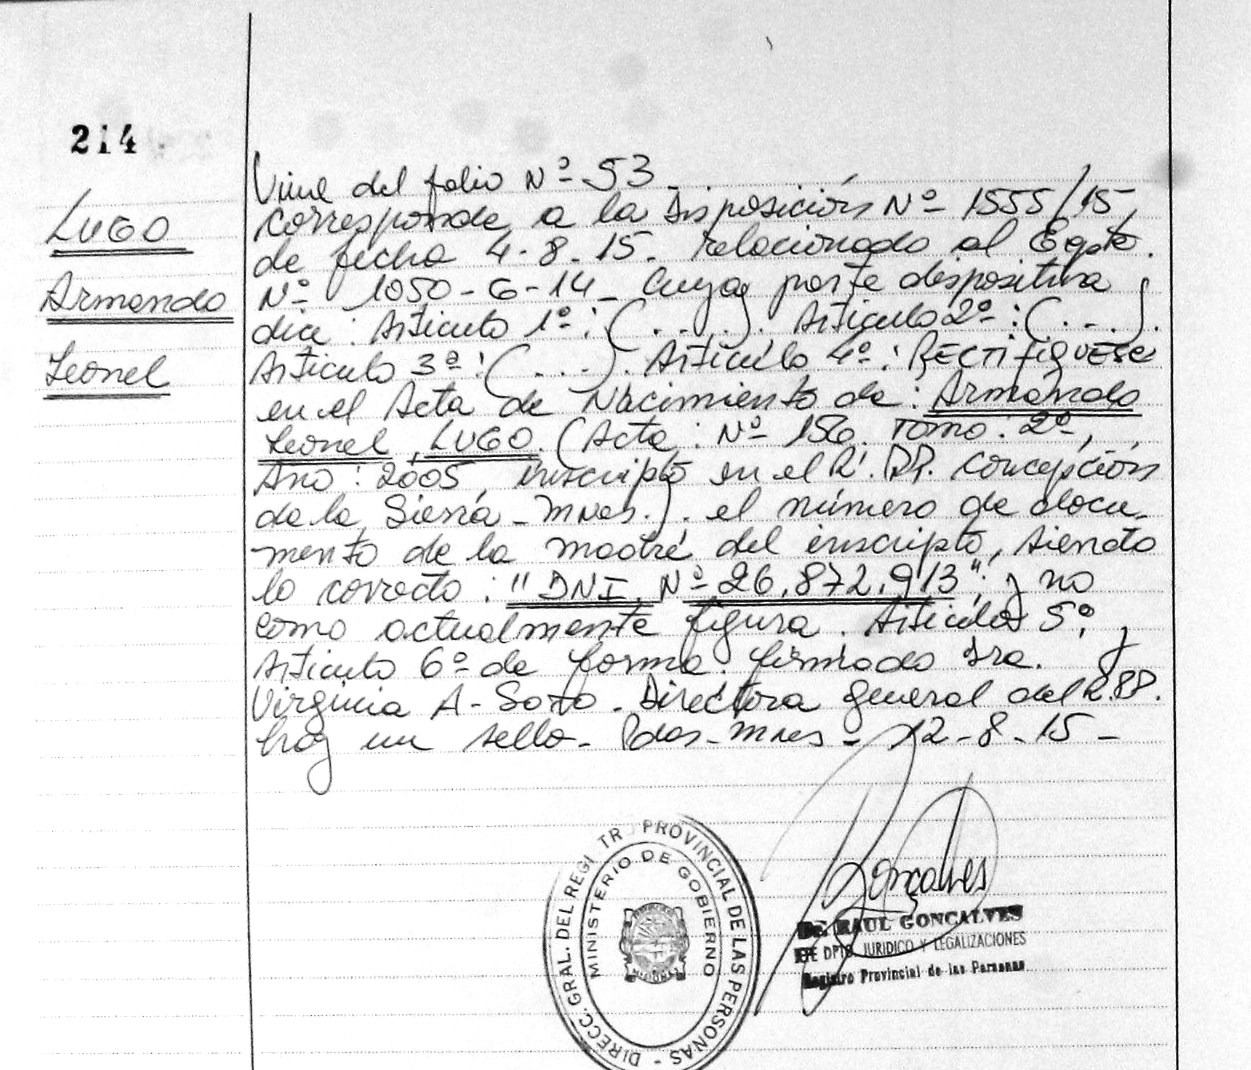 214
LUGO
Armando
Leonel
Viene del folio Nº 53
corresponde a la Disposición Nº 1555/15,
de fecha 4-8-15. relacionado al Expte.
Nº 1050-G-14_ Cuya parte dispositiva
dice: Artículo 1º: (....). Artículo 2º: (...).
Artículo 3º: (...). Artículo 4º: RECTIFIQUESE
en el Acta de Nacimiento de: Armando
Leonel, LUGO. (Acta: Nº 156. Tomo: 2º,
Año: 2005, inscripto en el R. PP. Concepción
de la Sierra - Mnes.). el número de docu-
mento de la madre del inscripto, siendo
lo correcto: "DNI. Nº 26.872.913". y no
como actualmente figura. Artículo 5º. y
Artículo 6º de forma. firmado Sra.
Virginia A- Soto. Directora General del R.PP.
hay un sello- Pdas-Mnes- 12-8-15-
Goncalves
DIRECC. GRAL. DEL REGI TR PROVINCIAL DE LAS PERSONAS -
MINISTERIO DE GOBIERNO
Dr. RAUL GONCALVES
JEFE DPTO JURIDICO Y LEGALIZACIONES
Registro Provincial de las Personas